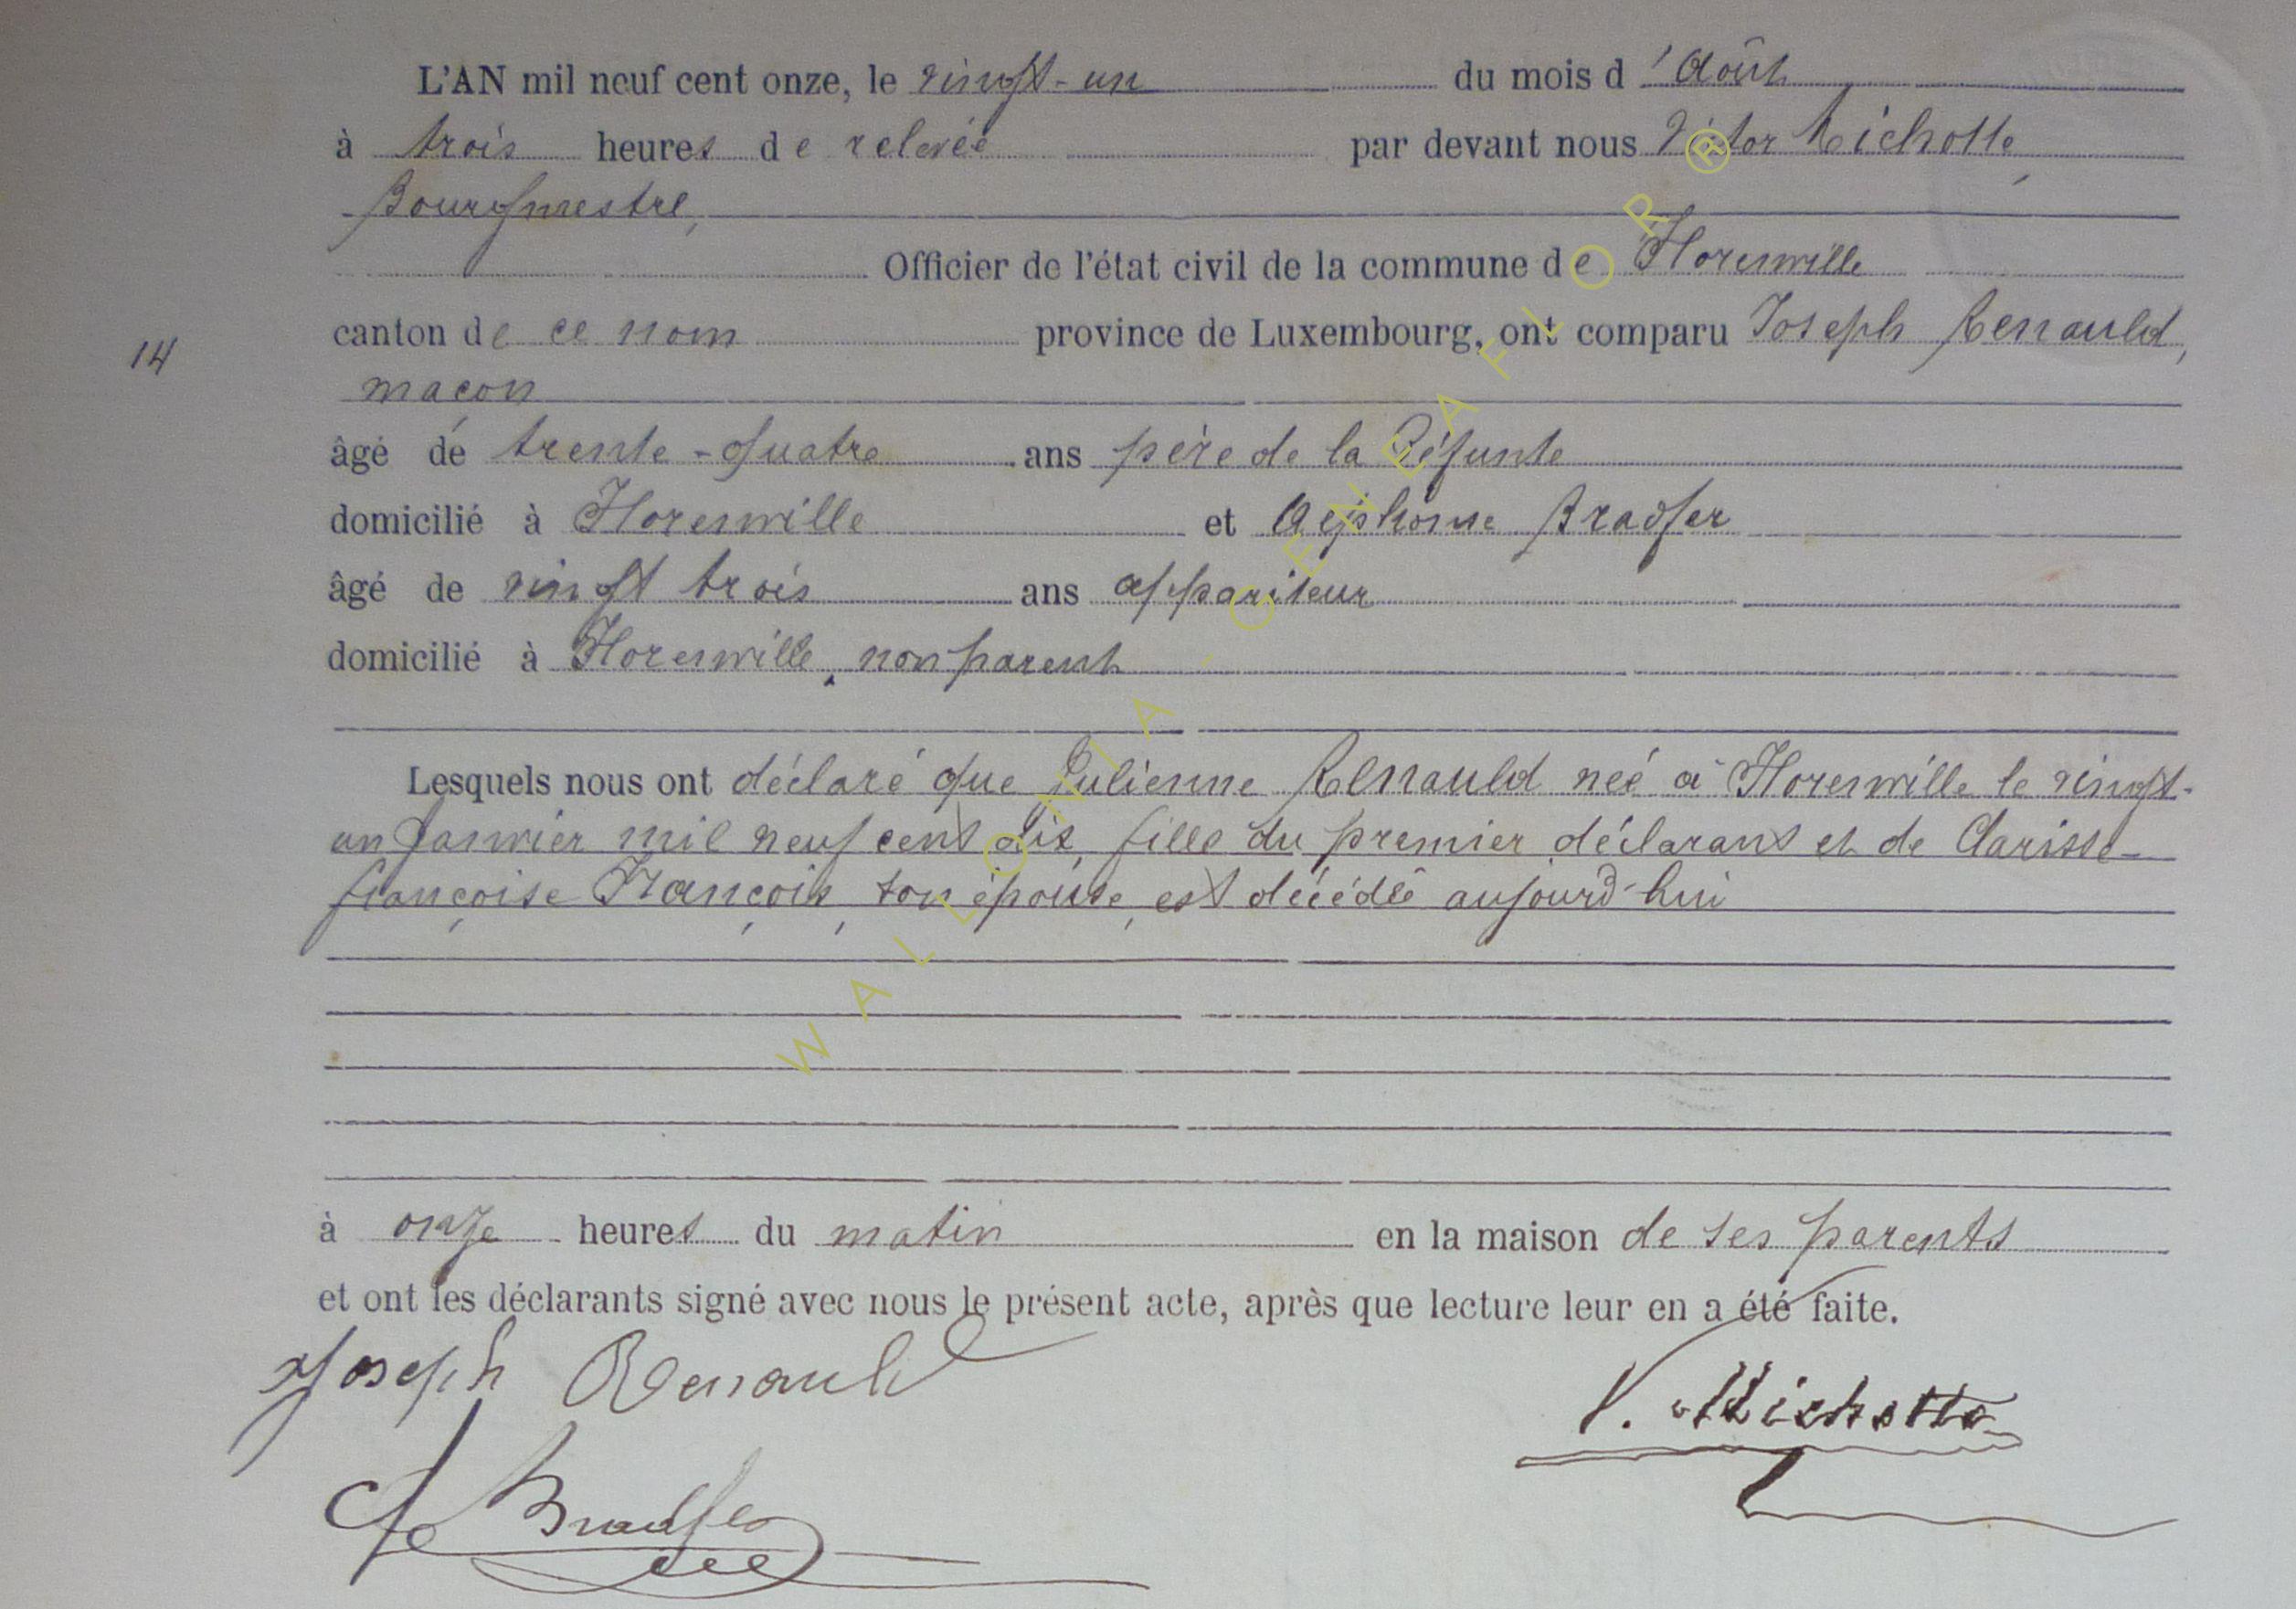 L'AN mil neuf cent onze, le vingt-un du mois d'Août
à trois heures de relevée par devant nous Victor Michotte,
Bourgmestre,
Officier de l'état civil de la commune de Florenville
14 canton de ce nom province de Luxembourg, ont comparu Joseph Renauld,
maçon
âgé de trente-quatre ans père de la défunte
domicilié à Florenville et Alphonse Bradfer
âgé de vingt trois ans appariteur
domicilié à Florenville, non parent
Lesquels nous ont déclaré que Julienne Renauld née à Florenville le vingt-
un Janvier mil neuf cent dix, fille du premier déclarant et de Clarisse-
françoise François, son épouse, est décédée aujourd'hui
à onze heures du matin en la maison de ses parents
et ont les déclarants signé avec nous le présent acte, après que lecture leur en a été faite.
Joseph Renauld
V. Michotte
Bradfer
WALLONIA - GENEAFLOR ®